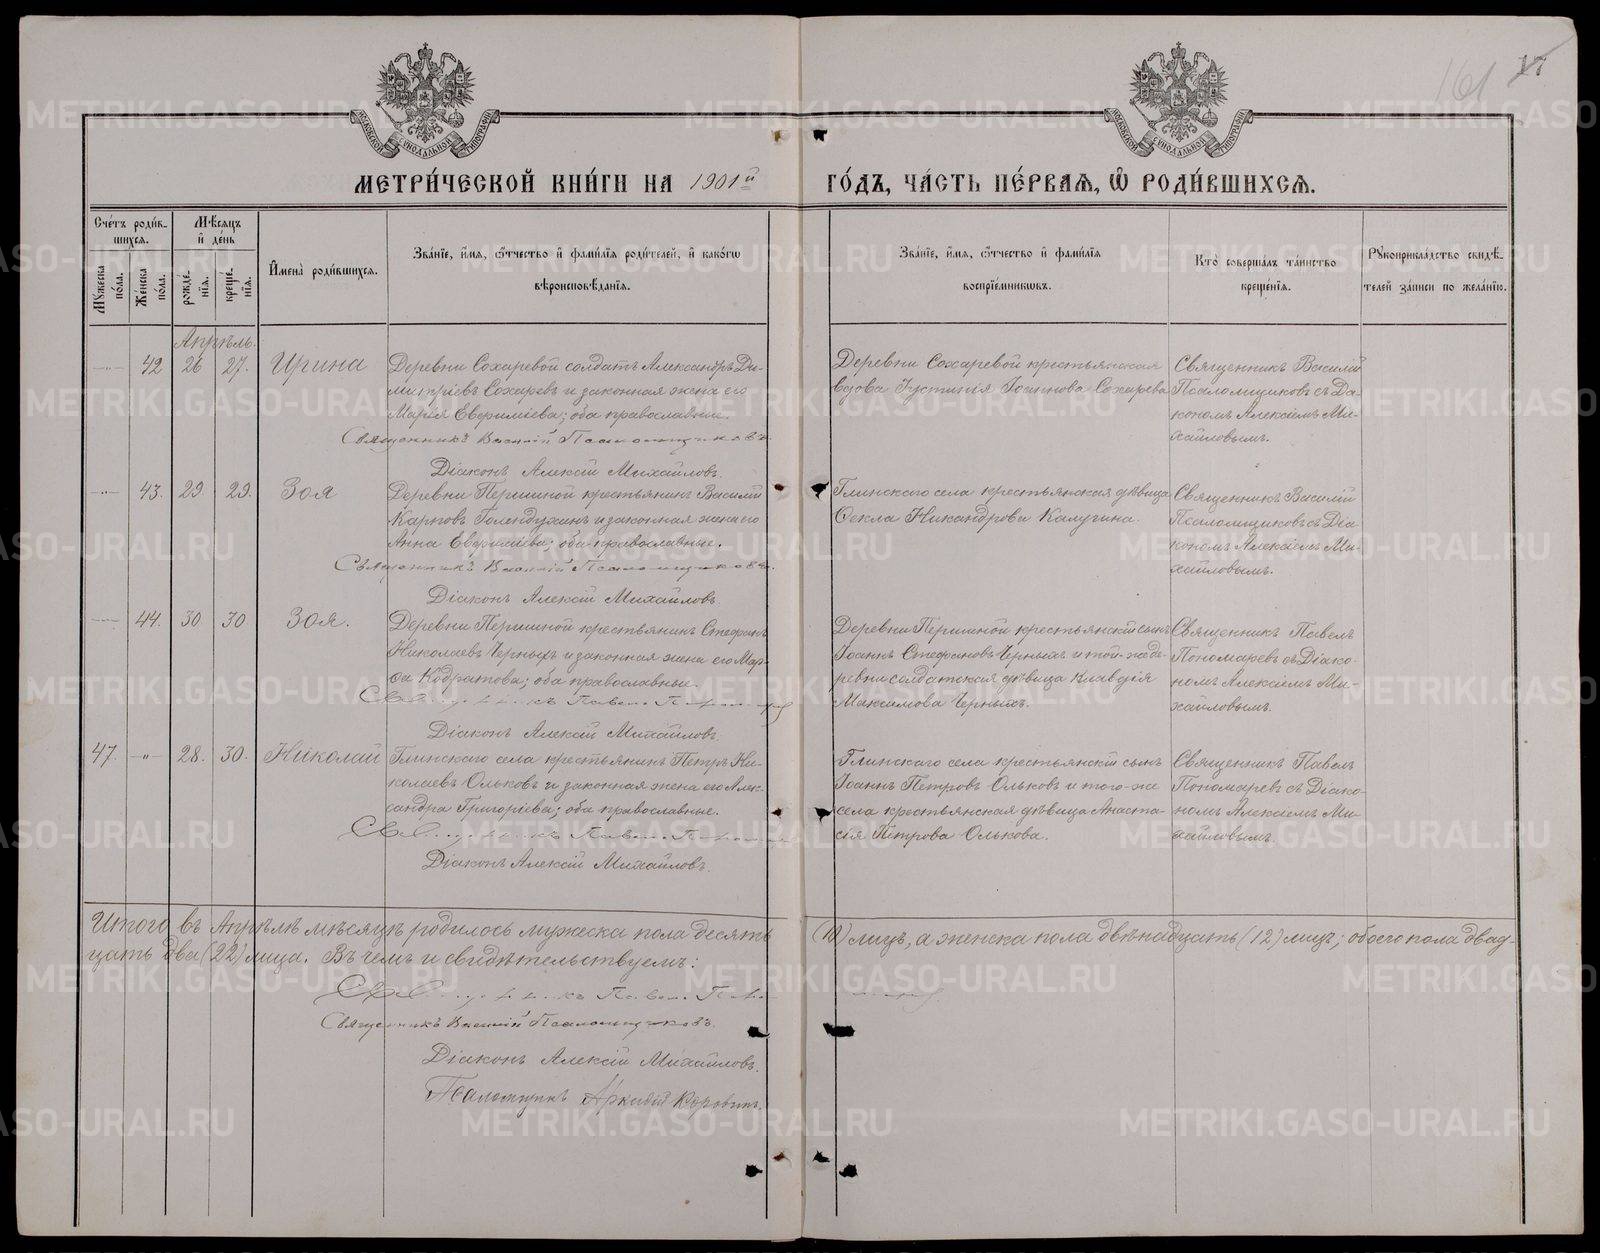 161
МОСКОВСКОЙ СУНОДАЛЬНОЙ ТИПОГРАФІИ
МОСКОВСКОЙ СУНОДАЛЬНОЙ ТИПОГРАФІИ
МЕТРИ́ЧЕСКОЙ КНИ́ГИ НА 1901й ГО́ДЪ, ЧА́СТЬ ПЕ́РВАѦ, Ѿ РОДИ́ВШИХСѦ.
Сче́тъ роди́вшихсѧ.
Мꙋ́жеска по́ла.
Же́нска по́ла.
Мѣ́сѧцъ и҆ де́нь
рожде́нїѧ.
креще́нїѧ.
И҆мена̀ роди́вшихсѧ.
Зва́нїе, и҆́мѧ, ѻ҆́тчество и҆ фами́лїѧ роди́телей, и҆ како́гѡ
вѣроисповѣ́данїѧ.
Зва́нїе, и҆́мѧ, ѻ҆́тчество и҆ фами́лїѧ
воспрїе́мникѡвъ.
Кто̀ соверша́лъ та́инство
креще́нїѧ.
Рꙋкоприкла́дство свидѣ́-
телей за́писи по жела́нїю.
Апрѣль.
42 26 27. Ирина
Деревни Сохаревой солдатъ Александръ Ди-
митріевъ Сохаревъ и законная жена его
Марія Евѳиміева; оба православные.
Священникъ Василій Псаломщиковъ.
Діаконъ Алексій Михайловъ.
Деревни Сохаревой крестьянская
вдова Іустинія Іоаннова Сохарева
Священникъ Василій
Псаломщиковъ съ Діа-
кономъ Алексіемъ Ми-
хайловымъ.
43. 29 29. Зоя
Деревни Першиной крестьянинъ Василій
Карповъ Голендухинъ и законная жена его
Анна Евѳиміева; оба православные.
Священникъ Василій Псаломщиковъ.
Діаконъ Алексій Михайловъ.
Глинскаго села крестьянская дѣвица
Ѳекла Никандрова Калугина.
Священникъ Василій
Псаломщиковъ съ Діа-
кономъ Алексіемъ Ми-
хайловымъ.
44. 30 30 Зоя.
Деревни Першиной крестьянинъ Стефанъ
Николаевъ Черныхъ и законная жена его Мар-
ѳа Кодратова; оба православные.
Священникъ Павелъ Пономаревъ
Діаконъ Алексій Михайловъ
Деревни Першиной крестьянскій сынъ
Іоаннъ Стефановъ Черныхъ и той-же де-
ревни солдатская дѣвица Клавдія
Максимова Черныхъ.
Священникъ Павелъ
Пономаревъ съ Діако-
номъ Алексіемъ Ми-
хайловымъ.
47. -"- 28. 30. Николай
Глинскаго села крестьянинъ Петръ Ни-
колаевъ Ольковъ и законная жена его Алек-
сандра Григоріева; оба православные.
Священникъ Павелъ Пономаревъ
Діаконъ Алексій Михайловъ.
Глинскаго села крестьянскій сынъ
Іоаннъ Петровъ Ольковъ и того-же
села крестьянская дѣвица Анаста-
сія Петрова Олькова.
Священникъ Павелъ
Пономаревъ съ Діако-
номъ Алексіемъ Ми-
хайловымъ.
Итого въ Апрѣлѣ мѣсяцѣ родилось мужеска пола десять (10) лицъ, а женска пола двѣнадцать (12) лицъ; обоего пола двад-
цать два (22) лица. Въ чемъ и свидѣтельствуемъ:
Священникъ Павелъ Пономаревъ
Священникъ Василій Псаломщиковъ.
Діаконъ Алексій Михайловъ.
Псаломщикъ Аркадій Коровинъ.
METRIKI.GASO-URAL.RU